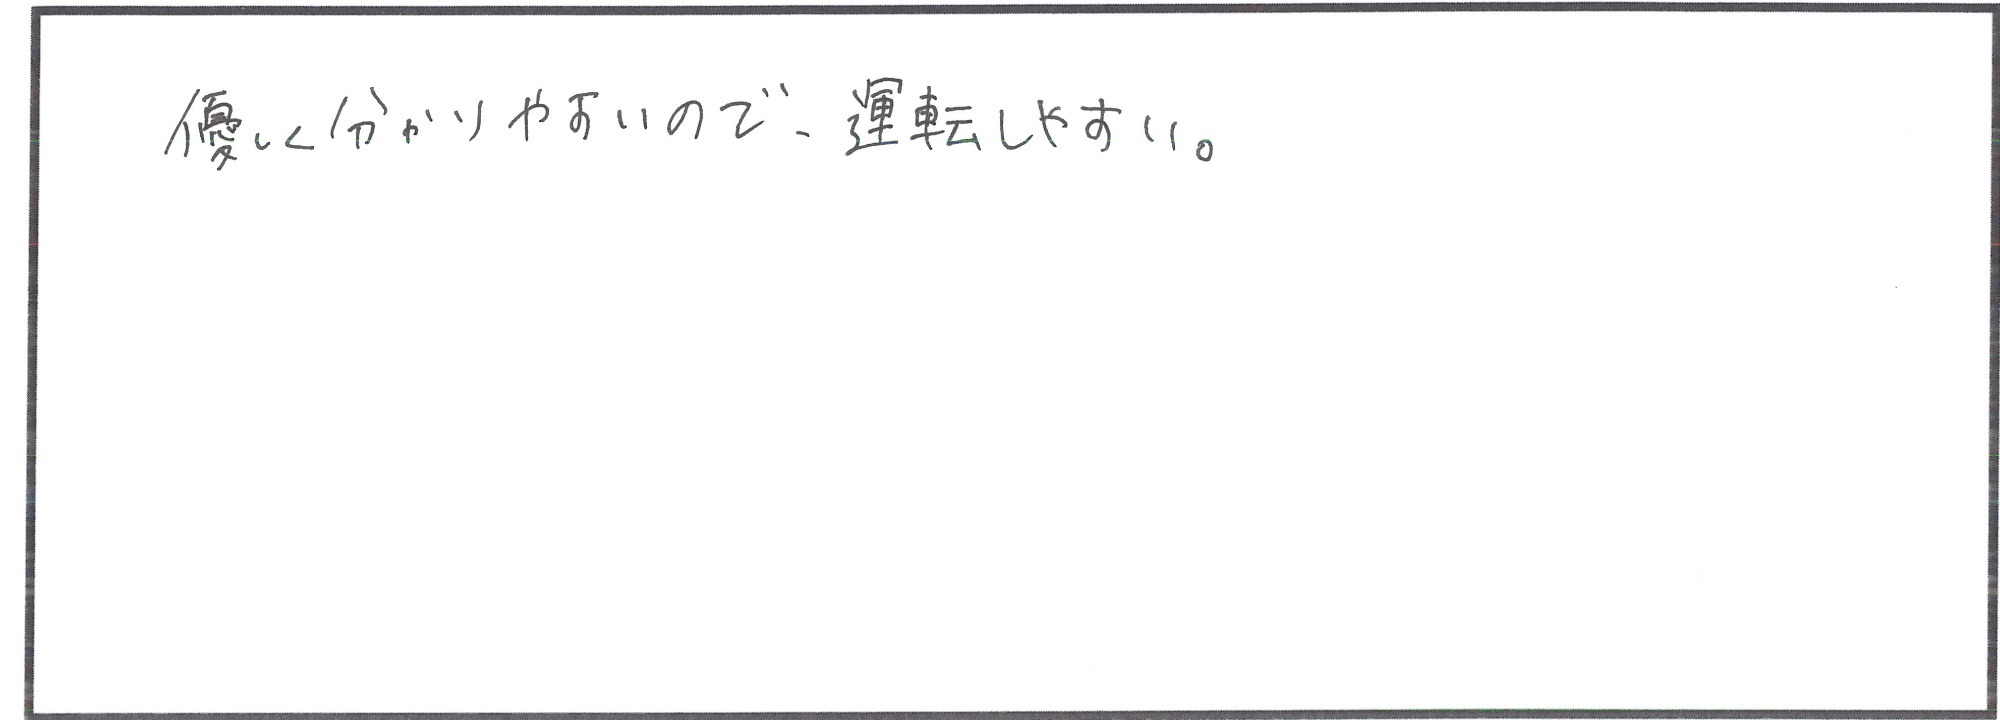 優しく分かりやすいので、運転しやすい。